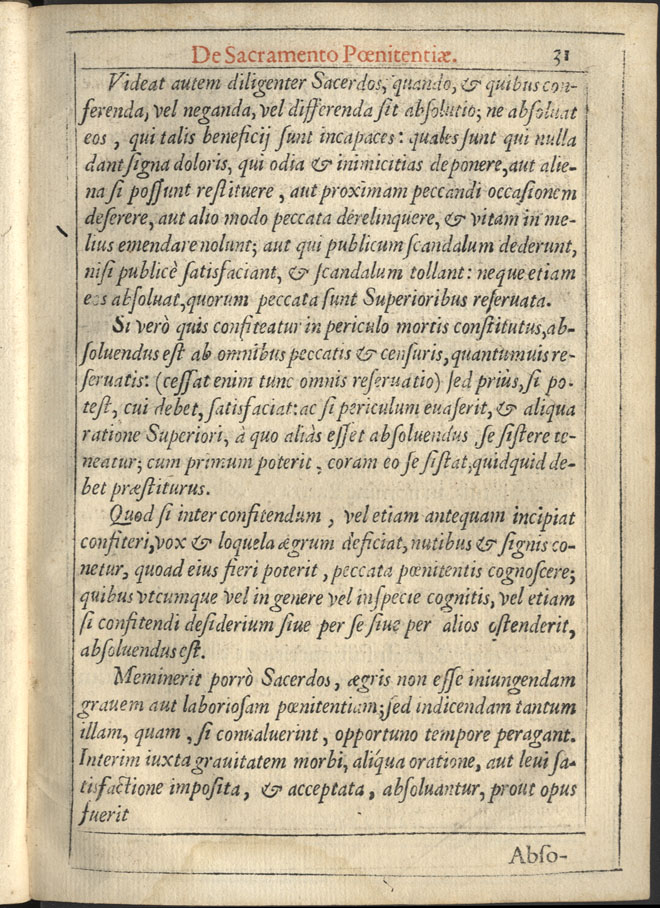 De Sacramento Pœnitentiæ. 31
Videat autem diligenter Sacerdos, quando, & quibus con-
ferenda, vel neganda, vel differenda sit absolutio; ne absoluat
eos, qui talis beneficij sunt incapaces: quales sunt qui nulla
dant signa doloris, qui odia & inimicitias deponere, aut alie-
na si possunt restituere, aut proximam peccandi occasionem
deserere, aut alio modo peccata derelinquere, & vitam in me-
lius emendare nolunt; aut qui publicum scandalum dederunt,
nisi publicè satisfaciant, & scandalum tollant: neque etiam
eos absoluat, quorum peccata sunt Superioribus reseruata.
Si verò quis confiteatur in periculo mortis constitutus, ab-
soluendus est ab omnibus peccatis & censuris, quantumuis re-
seruatis: (cessat enim tunc omnis reseruatio) sed priùs, si po-
test, cui debet, satisfaciat: ac si periculum euaserit, & aliqua
ratione Superiori, à quo aliàs esset absoluendus se sistere te-
neatur; cum primum poterit, coram eo se sistat, quidquid de-
bet præstiturus.
Quod si inter confitendum, vel etiam antequam incipiat
confiteri, vox & loquela ægrum deficiat, nutibus & signis co-
netur, quoad eius fieri poterit, peccata pœnitentis cognoscere;
quibus vtcumque vel in genere vel in specie cognitis, vel etiam
si confitendi desiderium siue per se siue per alios ostenderit,
absoluendus est.
Meminerit porrò Sacerdos, ægris non esse iniungendam
grauem aut laboriosam pœnitentiam; sed indicendam tantum
illam, quam, si conualuerint, opportuno tempore peragant.
Interim iuxta grauitatem morbi, aliqua oratione, aut leui sa-
tisfactione imposita, & acceptata, absoluantur, prout opus
fuerit
Abso-